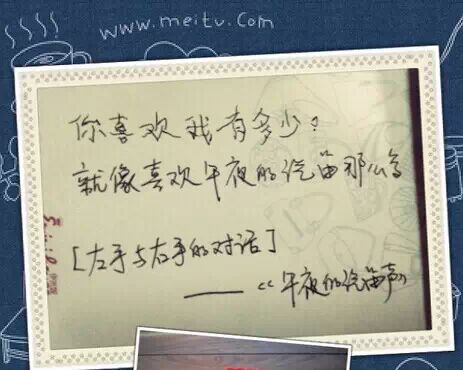 www.meitu.com
你喜欢我有多少?
就像喜欢午夜的汽笛那么多
[左手与右手的对话]
——《午夜的汽笛声》